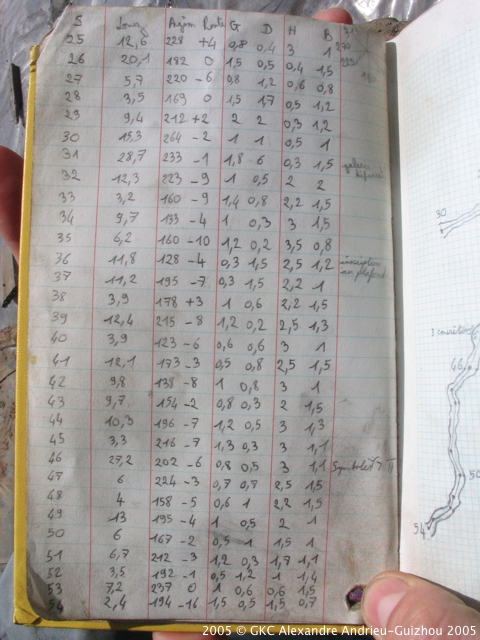 S Long Azim Pente G D H B
25 12,6 228 +4 0,8 0,4 3 1
26 20,1 182 0 1,5 0,5 0,4 1,5
27 5,7 220 -6 0,8 1,2 0,6 0,8
28 3,5 169 0 1,5 1,7 0,5 1,2
29 9,4 212 +2 2 2 0,3 1,2
30 15,3 264 -2 1 1 0,5 1
31 28,7 233 -1 1,8 6 0,3 1,5
32 12,3 223 -9 1 0,5 2 2
33 3,2 160 -9 1,4 0,8 2,2 1,5
34 9,7 133 -4 1 0,3 3 1,5
35 6,2 160 -10 1,2 0,2 3,5 0,8
36 11,8 128 -4 0,3 1,5 2,5 1,2 inscription
37 11,2 195 -7 0,3 1,5 2,2 1 au plafond
38 3,9 178 +3 1 0,6 2,2 1,5
39 12,4 215 -8 1,2 0,2 2,5 1,3
40 3,9 123 -6 0,6 0,6 3 1
41 12,1 173 -3 0,5 0,8 2,5 1,5
42 9,8 138 -8 1 0,8 3 1
43 9,7 154 -2 0,8 0,3 2 1,5
44 10,3 196 -7 1,2 0,5 3 1,3
45 3,3 216 -7 1,3 0,3 3 1,1
46 27,2 202 -6 0,8 0,5 3 1,1
47 6 224 -3 0,7 0,7 2,5 1,5
48 4 158 -5 0,6 1 2,2 1,5
49 13 195 -4 1 0,5 2 1
50 6 167 -2 0,5 1 1,5 1
51 6,7 212 -3 1,2 0,3 1,7 1,1
52 3,5 192 -1 0,5 1,2 1 1,4
53 7,2 237 0 1 0,6 0,6 1,5
54 2,4 194 -16 1,5 0,5 1,5 0,7
30
46
50
54
2005 © GKC Alexandre Andrieu-Guizhou 2005